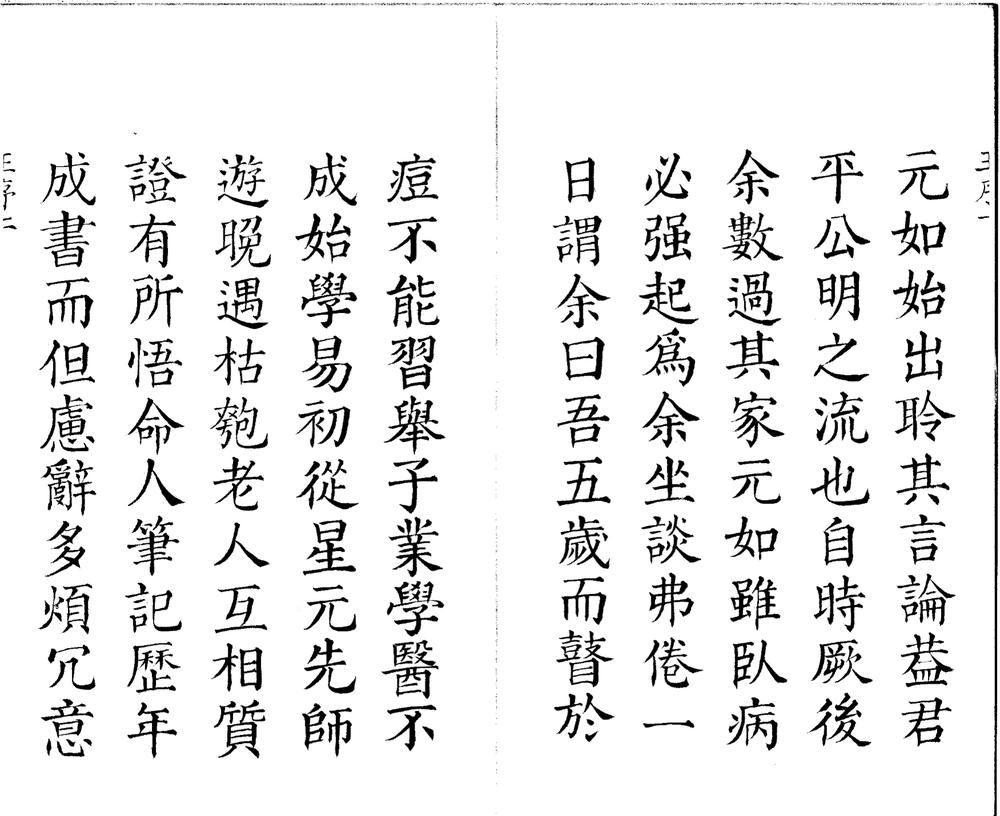 王序一
元如始出聆其言論葢君
平公明之流也自時厥後
余數過其家元如雖臥病
必强起爲余坐談弗倦一
日謂余曰吾五歲而瞽於
痘不能習舉子業學醫不
成始學易初從星元先師
遊晚遇枯匏老人互相質
證有所悟命人筆記歷年
成書而但慮辭多煩冗意
王序二